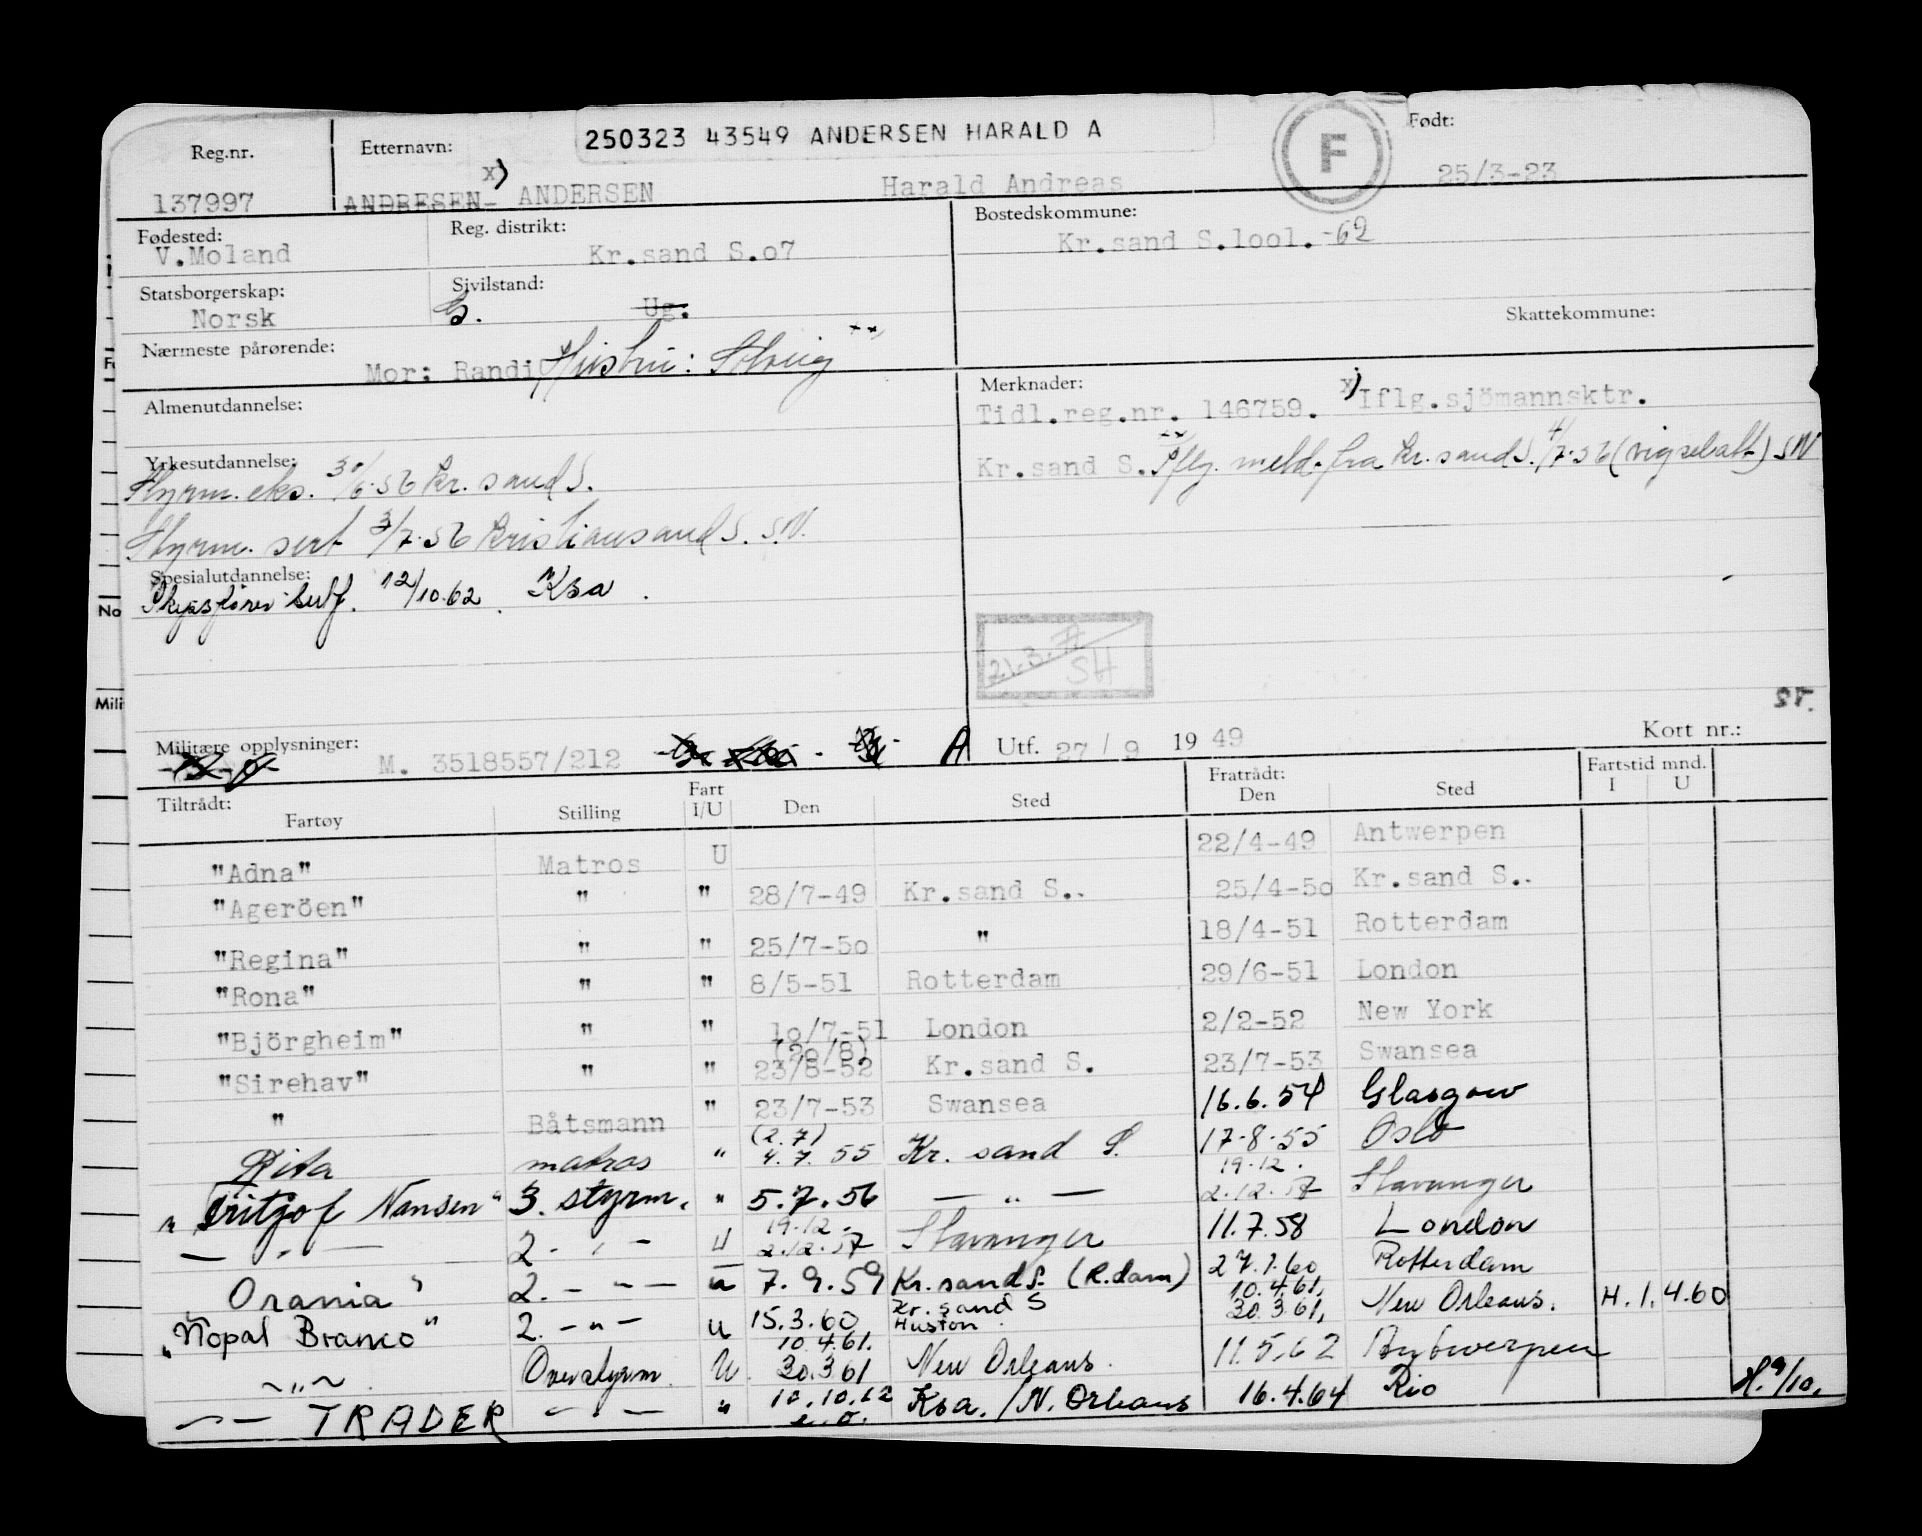 250323 43549 ANDERSEN HARALD A
F
Reg.nr. Etternavn: Født:
137997 ANDRESEN x) ANDERSEN Harald Andreas 25/3-23
Fødested: Reg. distrikt: Bostedskommune:
V.Moland Kr.sand S.o7 Kr.sand S.1oo1. -62
Statsborgerskap: Sivilstand: Skattekommune:
Norsk G. Ug.
Nærmeste pårørende: Mor: Randi Hustru: Solveig xx)
Almenutdannelse:
Merknader: Tidl.reg.nr. 146759. x) Iflg.sjömannsktr.
Kr.sand S. xx Iflg. meld. fra Kr.sand S. 4/7-56 (vigselatt) SN
Yrkesutdannelse:
Styrm. eks. 30/6-56 Kr.sand S.
Styrm. sert 3/7-56 Kristiansand S. S.N.
Spesialutdannelse:
Skipsfører sertf. 12/10.62. Ksa.
21.3.77
SH
Militære opplysninger: M. 3518557/212 A Utf. 27/9 1949 Kort nr.:
Tiltrådt: Fratrådt: Fartstid mnd.
Fartøy Stilling Fart I/U Den Sted Den Sted I U
"Adna" Matros U 22/4-49 Antwerpen
"Ageröen" " " 28/7-49 Kr.sand S.. 25/4-5o Kr.sand S..
"Regina" " " 25/7-5o " 18/4-51 Rotterdam
"Rona" " " 8/5-51 Rotterdam 29/6-51 London
"Björgheim" " " 1o/7-51 London 2/2-52 New York
"Sirehav" " " (2o/8) 23/8-52 Kr.sand S. 23/7-53 Swansea
" Båtsmann " 23/7-53 Swansea 16.6.54 Glasgow
Rita matros " (2.7) 4.7.55 Kr. sand S. 17-8-55 Oslo
"Fritjof Nansen" 3. styrm. " 5.7.56 — " — 19.12. 2.12.57 Stavanger
— " — 2. - " - U 19.12. 2.12.57 Stavanger 11.7.58 London
Orania" 2. - " - u 7.9.59 Kr.sand S. (R.dam) 27.1.60 Rotterdam
"Nopal Branco" 2. - " - u 15.3.60 Kr.sand S Huston. 10.4.61. 30.3.61, New Orleans. H.1.4.60
~ " ~ Overstyrm. U. 10.4.61. 30.3.61 New Orleans. 11.5.62 Antwerpen
— " — TRADER — " — " 10.10.62 e.o. Ksa./N. Orleans 16.4.64 Rio H.9/10.
No
Mili